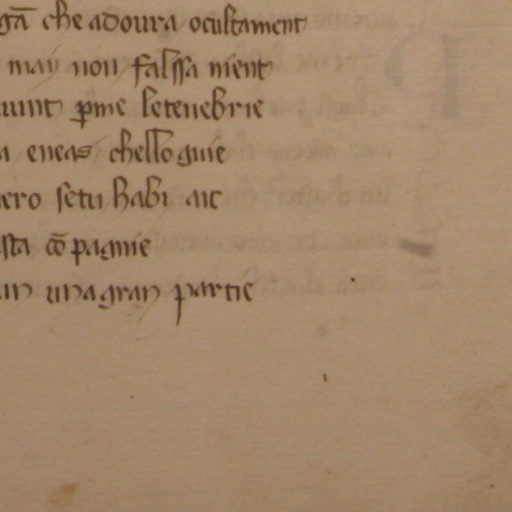 gā che adoura ocultament
may non falssa nient
uint p̲me letenebrie
a eneas chello guie
ero setu habi aic
sta cō pagnie
un una gran partie